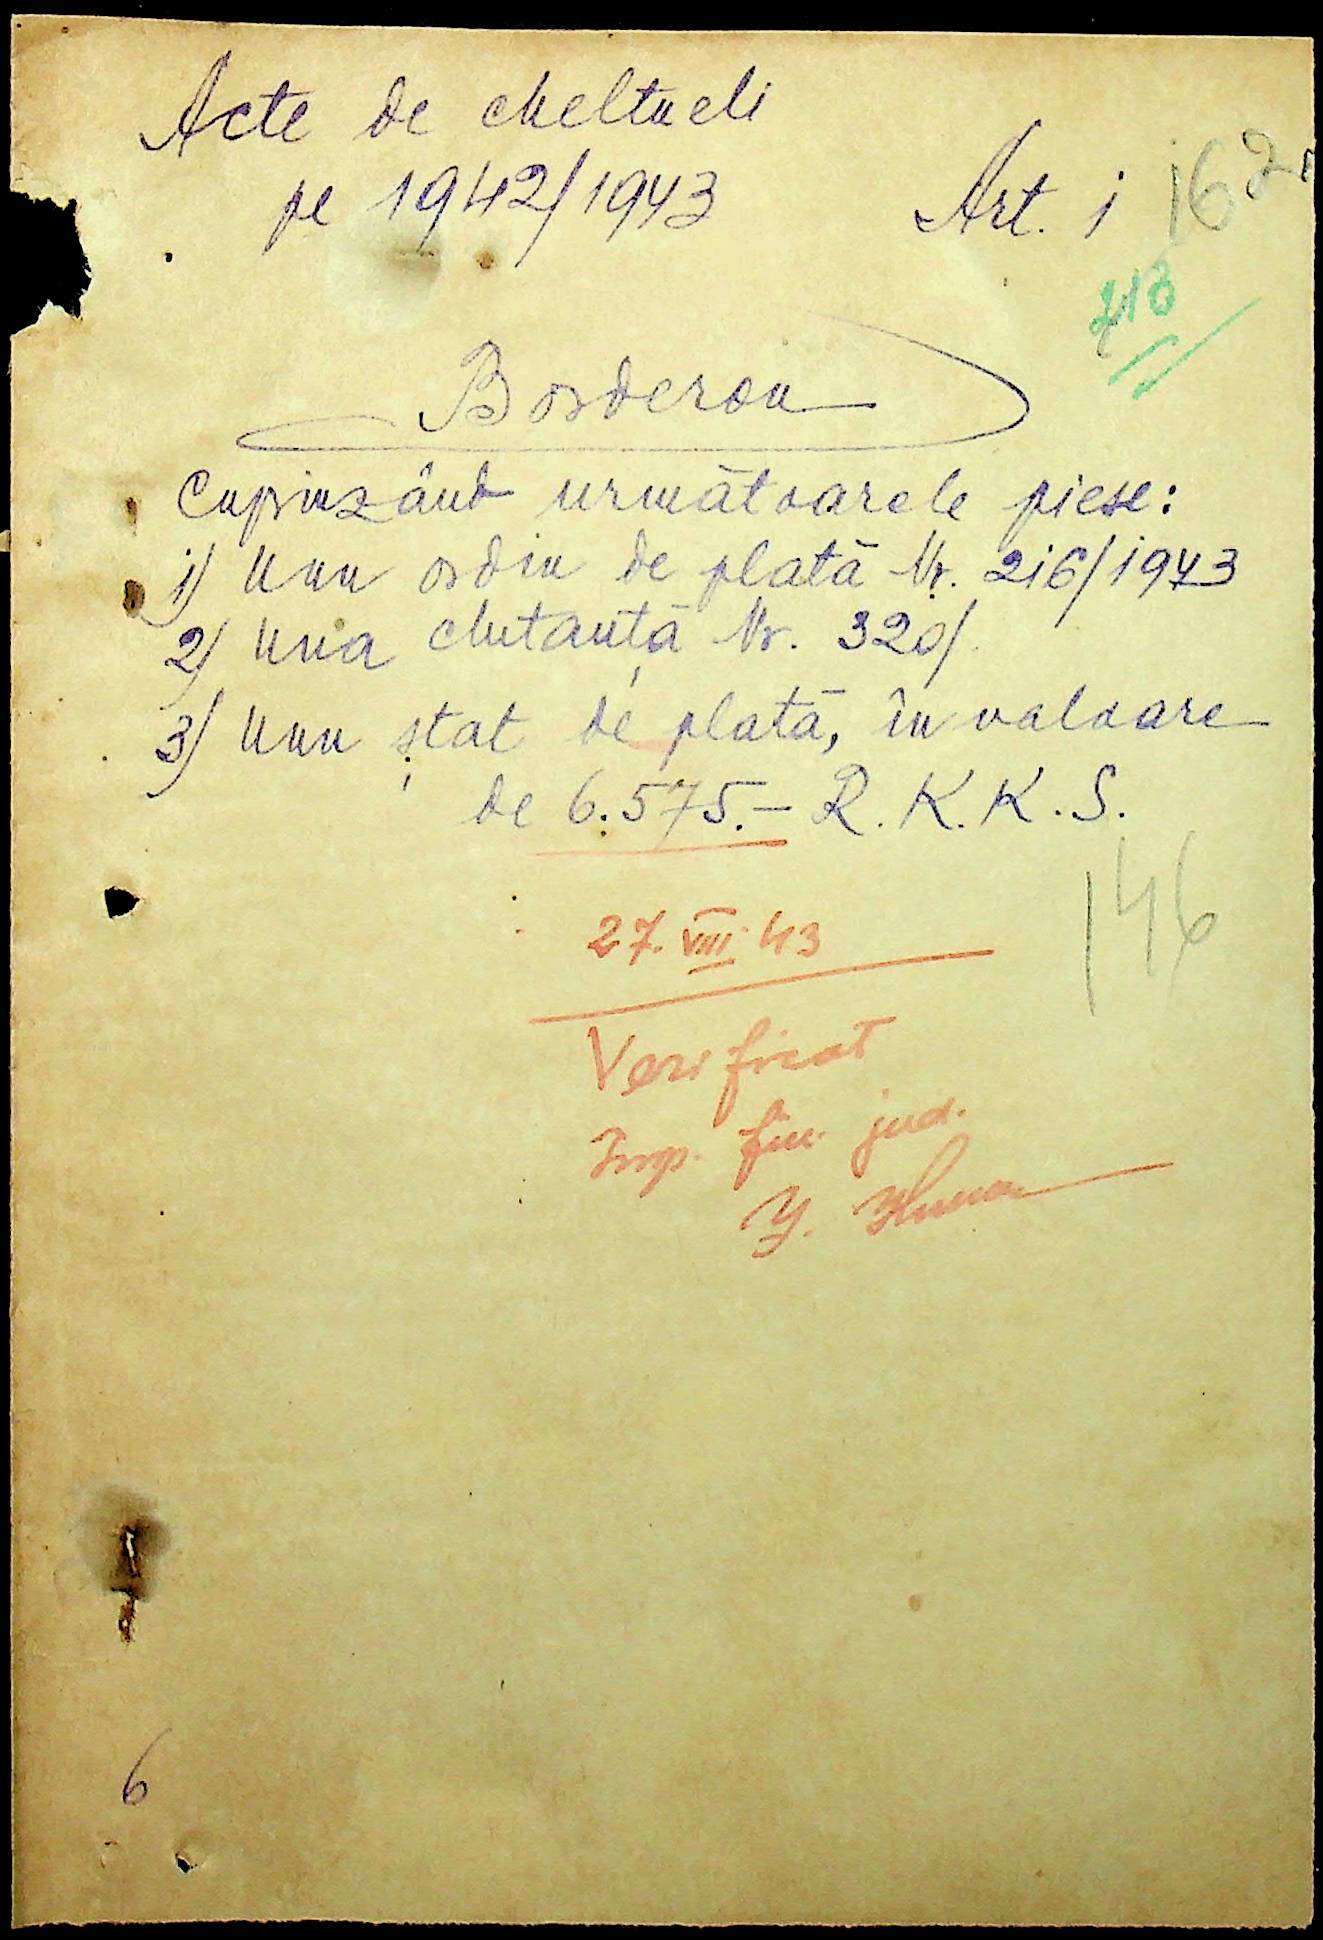 Acte de cheltueli
pe 1942/1943
Art. 1
162
Borderou
Cuprinzând următoarele piese:
1) Unu ordin de plată Nr. 216/1943
2) Una chitanță Nr. 320/
3) Unu ștat de plată, în valoare
de 6.575.- R. K. K. S.
146
27. VIII 43
Verificat
Insp. fin. jud.
6